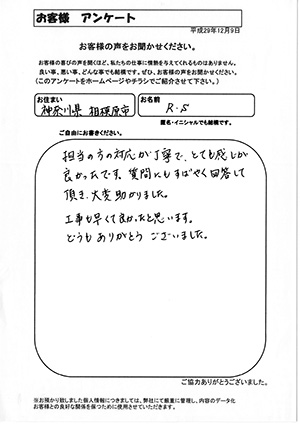 お客様 アンケート
平成29年12月9日
お客様の声をお聞かせください。
お客様の喜びの声を聞くほど、私たちの仕事に情熱を与えてくれるものはありません。
良い事、悪い事、どんな事でも結構です。ぜひ、お客様の声をお聞かせください。
(このアンケートをホームページやチラシでご紹介させて下さい。)
お住まい
神奈川県 相模原市
お名前
R.S
匿名・イニシャルでも結構です。
ご自由にお書きください。
担当の方の対応が丁寧で、とても感じが
良かったです。質問にもすばやく回答して
頂き、大変助かりました。
工事も早くて良かったと思います。
どうもありがとうございました。
ご協力ありがとうございました。
※お預かり致しました個人情報につきましては、弊社にて厳重に管理し、内容のデータ化
お客様との良好な関係を保つために使用させていただきます。